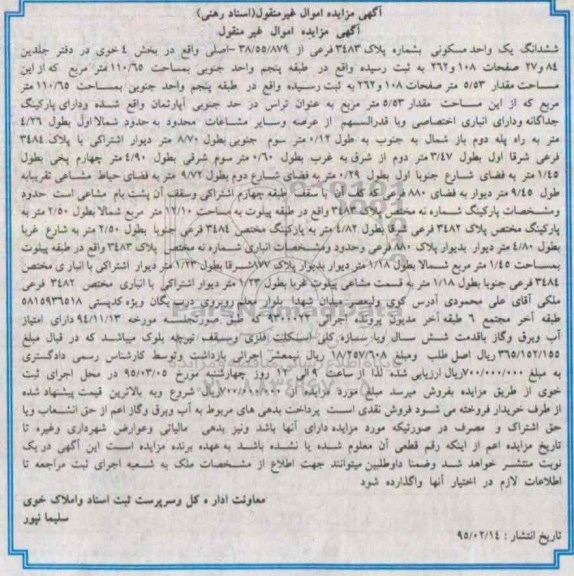 آگهی مزایده اموال غیرمنقول(اسناد رهنی)
آگهی مزایده اموال غیر منقول
ششدانگ یک واحد مسکونی بشماره پلاک ۳۴۸۳ فرعی از ۳۸/۵۵/۸۷۹-اصلی واقع در بخش ۴ خوی در دفتر جلدین
۸۴ و۲۷ صفحات ۱۰۸ و۲۶۲ به ثبت رسیده واقع در طبقه پنجم واحد جنوبی بمساحت ۱۱۰/۶۵ متر مربع که از این
مساحت مقدار ۵/۵۳ متر صفحات ۱۰۸ و۲۶۲ به ثبت رسیده واقع در طبقه پنجم واحد جنوبی بمساحت ۱۱۰/۶۵ متر
مربع که از این مساحت مقدار ۵/۵۳ متر مربع به عنوان تراس در حد جنوبی آپارتمان واقع شده ودارای پارکینگ
جداگانه ودارای انباری اختصاصی وبا قدرالسهم از عرصه وسایر مشاعات محدود به حدود شمالا اول بطول ۴/۲۶
متر به راه پله دوم باز شمال به جنوب به طول ۰/۱۲ متر سوم جنوبی بطول ۸/۷۰ متر دیوار اشتراکی با پلاک ۳۴۸۴
فرعی شرقا اول بطول ۳/۴۷ متر دوم از شرق به غرب بطول ۰/۶۰ متر سوم شرقی بطول ۴/۹۰ متر چهارم پخی بطول
۱/۴۵ متر به فضای شارع جنوبا اول بطول ۰/۲۹ متر به فضای شارع دوم بطول ۹/۷۲ متر به فضای حیاط مشاعی تقریبابه
طول ۹/۴۵ متر دیوار به فضای ۸۸۰ فرعی که کف آن با سقف طبقه چهارم اشتراکی وسقف آن پشت بام مشاعی است حدود
ومشخصات پارکینگ شماره نه مختص پلاک ۳۴۸۳ واقع در طبقه پیلوت به مساحت ۱۲/۱۰ متر مربع شمالا بطول ۲/۵۰ متر به
پارکینگ مختص پلاک ۳۴۸۲ فرعی شرقا بطول ۴/۸۲ متر به پارکینگ مختص ۳۴۸۴ فرعی جنوبا بطول ۲/۵۰ متر به شارع غربا
بطول ۴/۸۰ متر دیوار بدیوار پلاک ۸۸۰ فرعی وحدود ومشخصات انباری شماره نه مختص پلاک ۳۴۸۳ واقع در طبقه پیلوت
بمساحت ۱/۴۵ متر مربع شمالا بطول ۱/۱۸ متر دیوار بدیوار پلاک ۸۷۷ شرقا بطول ۱/۲۳ متر دیوار اشتراکی با انباری مختص
۳۴۸۴ فرعی جنوبا بطول ۱/۱۸ متر به قسمت مشاعی پیلوت غربا بطول ۱/۲۳ متر دیوار اشتراکی با انباری مختص ۳۴۸۲ فرعی
ملکی آقای علی محمودی آدرس کوی ولیعصر میدان شهدا بلوار معلم روبروی درب یگان ویژه کدپستی ۵۸۱۵۹۳۶۵۱۸
طبقه آخر مجتمع ۶ طبقه آخر مدیون پرونده اجرائی که طبق صورتجلسه مورخه ۹۴/۱۱/۱۳ دارای امتیاز
آب وبرق وگاز باقدمت شش سال وبا سازه کلی اسکلت فلزی وسقف تیرچه بلوک میباشد که در قبال مبلغ
۳۶۵/۱۵۲/۱۵۵ ریال اصل طلب ومبلغ ۱۸/۲۵۷/۶۰۸ ریال نیمعشر اجرائی بازداشت وتوسط کارشناس رسمی دادگستری
به مبلغ ۷۰۰/۰۰۰/۰۰۰ریال ارزیابی شده لذا از ساعت ۹ الی ۱۲ روز چهارشنبه مورخ ۹۵/۰۳/۰۵ در محل اجرای ثبت
خوی از طریق مزایده بفروش میرسد مبلغ مورد مزایده از ۷۰۰/۰۰۰/۰۰۰ریال شروع وبه بالاترین قیمت پیشنهاد شده
از طرف خریدار فروخته می شود فروش نقدی است پرداخت بدهی های مربوط به آب وبرق وگاز اعم از حق انشعاب ویا
حق اشتراک و مصرف در صورتیکه مورد مزایده دارای آنها باشد ونیز بدهی مالیاتی وعوارض شهرداری وغیره تا
تاریخ مزایده اعم از اینکه رقم قطعی آن معلوم شده یا نشده باشد به عهده برنده مزایده است این آگهی در یک
نوبت منتشر خواهد شد وضمنا داوطلبین میتوانند جهت اطلاع از مشخصات ملک به شعبه اجرای ثبت مراجعه تا
اطلاعات لازم در اختیار آنها واگذارده شود
معاونت اداره کل وسرپرست ثبت اسناد واملاک خوی
سلیما نپور
تاریخ انتشار : ۹۵/۰۲/۱۴